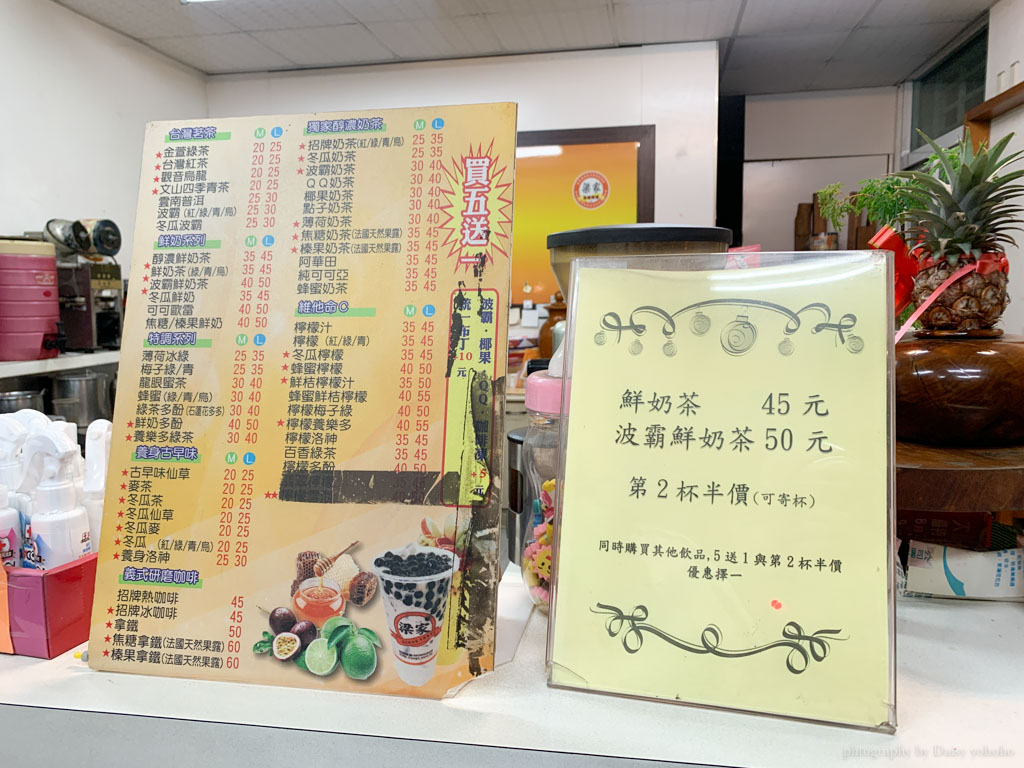 台灣茗茶 M L
★金萱綠茶 20 25
★台灣紅茶 20 25
★觀音烏龍 20 25
★文山四季青茶 20 25
雲南普洱 25 30
波霸(紅/綠/青/烏) 25 30
冬瓜波霸 25 30
鮮奶系列 M L
醇濃鮮奶茶 35 45
★鮮奶茶(綠/青/烏) 35 45
★波霸鮮奶茶 40 50
★冬瓜鮮奶 35 45
可可歐蕾 40 50
焦糖/榛果鮮奶 40 50
特調系列 M L
薄荷冰綠 25 35
梅子綠/青 25 35
龍眼蜜茶 30 40
蜂蜜(綠/青/烏) 30 40
綠茶多酚(石蓮花多多) 30 40
★鮮奶多酚 40 50
★養樂多綠茶 30 40
養身古早味 M L
★古早味仙草 20 25
★麥茶 20 25
★冬瓜茶 20 25
★冬瓜仙草 20 25
★冬瓜麥 20 25
★冬瓜(紅/綠/青/烏) 20 25
★養身洛神 25 30
義式研磨咖啡
招牌熱咖啡 45
★招牌冰咖啡 45
★拿鐵 50
★焦糖拿鐵(法國天然果露) 60
★榛果拿鐵(法國天然果露) 60
獨家醇濃奶茶 M L
★招牌奶茶(紅/綠/青/烏) 25 35
★冬瓜奶茶 25 35
★波霸奶茶 30 40
QQ奶茶 30 40
椰果奶茶 30 40
點子奶茶 30 40
★薄荷奶茶 30 40
★焦糖奶茶(法國天然果露) 35 45
★榛果奶茶(法國天然果露) 35 45
阿華田 35 45
純可可亞 35 45
蜂蜜奶茶 35 45
維他命C M L
檸檬汁 35 45
檸檬(紅/綠/青) 35 45
★冬瓜檸檬 35 45
★蜂蜜檸檬 40 50
★鮮桔檸檬汁 35 50
蜂蜜鮮桔檸檬 40 55
檸檬梅子綠 40 50
★檸檬養樂多 40 50
檸檬洛神 35 45
百香綠茶 40 55
檸檬多酚 40 50
買五送一
波霸·椰果
梁家
梁家
鮮奶茶 45 元
波霸鮮奶茶 50 元
第2杯半價(可寄杯)
同時購買其他飲品,5送1與第2杯半價
優惠擇一
photography by DaBy yohoho